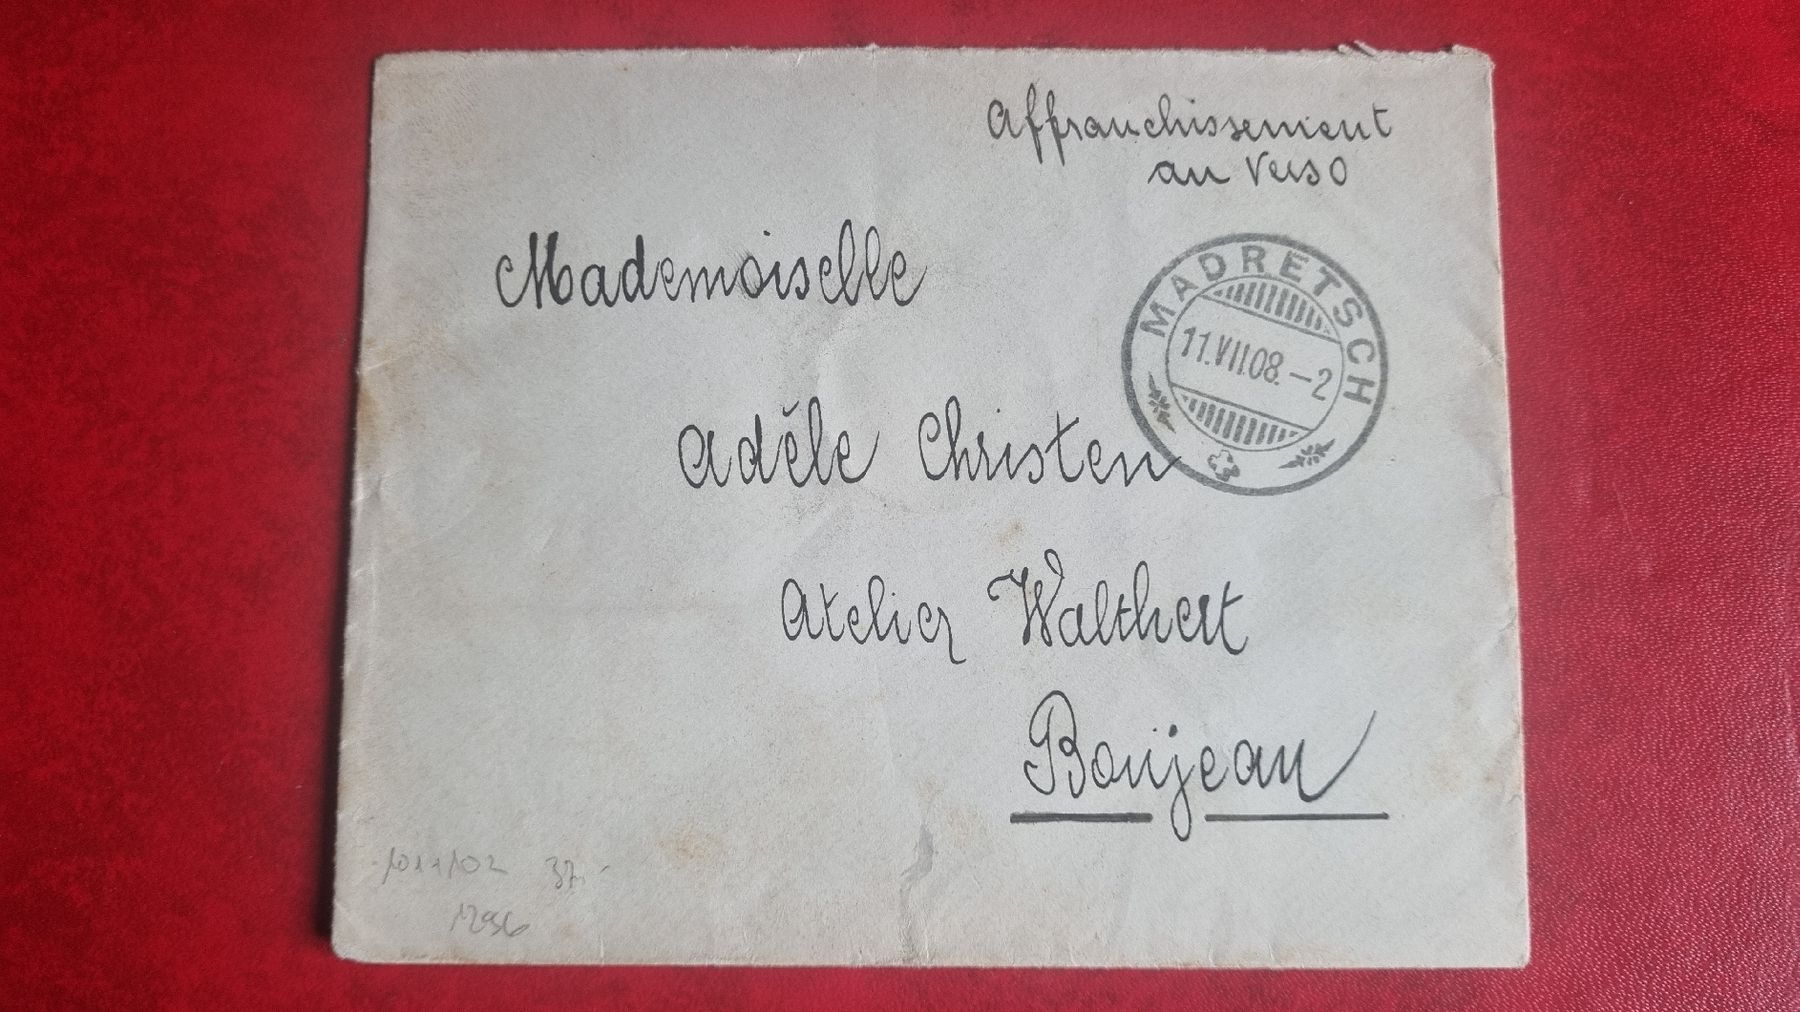 Affranchissement
au Verso
Mademoiselle
MADRETSCH
11.VII.08.-2
Adèle Christen
Atelier Walthert
Boujean
101+102 37.-
1296